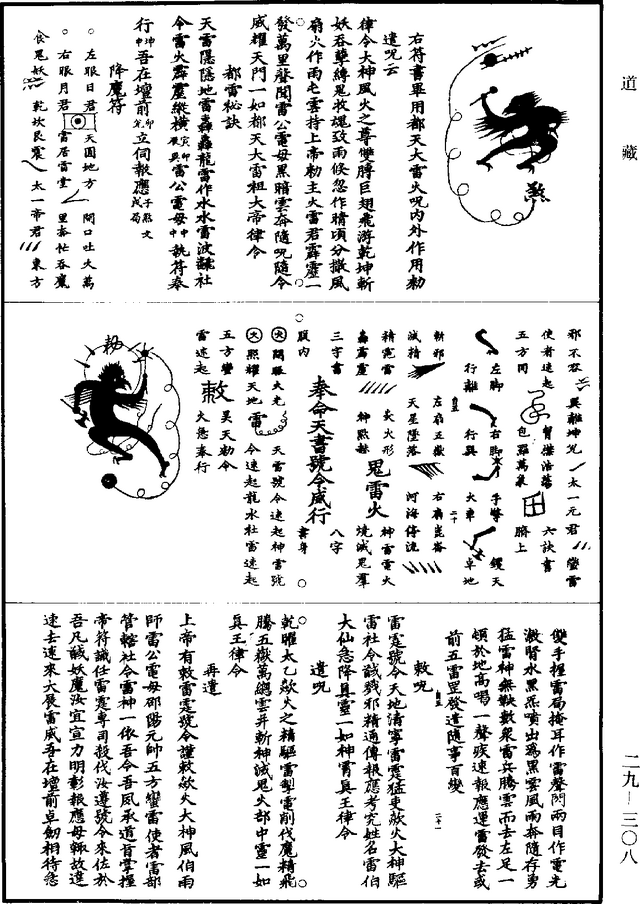 道藏
右符書畢用都天大雷火呪內外作用勅
遣呪云
律令大神風火之尊雙腾巨翅飛游乾坤斬
妖吞孽縛鬼救魂致雨倏忽作晴頃分撒風
扇火作雨屯雲持上帝勅主火雷君霹靂一
發萬里聲聞雷公電母黑暗雲奔隨呪隨令
威耀天門一如都天大雷祖大帝律令
都雷祕訣
天雷隱隱地雷轟轟龍雷作水水雷波翻社
令雷火霹靂縱橫雷公電母中執符奉
行坤申吾在壇前立伺報應
降魔符
左眼日君 天圓地方 開口吐火萬
右眼月君 雷居雷堂 里奔忙吞魔
食鬼妖 乾坎艮震 太一帝君 東方
煞
邪不容 巽離坤兌 太一元君 瑩雷
使者速起 腎傑浩蕩 六訣書
五方同 包羅萬象 臍上
左脚 右脚 手擎 鑊天
行離 行巽 火車 卓地
斬邪 左扇五嶽 右扇崑崙
滅精 天星墜落 河海停流
精霓雷 炎火形 神雷電火
轟霹靂 神煞赫 鬼雷火 燒滅鬼羣
三字書 八字
腹內 奉命天書號令威行 書身
火開眼火光 天雷號令速起神雷號
火照耀天地雷 令速起龍水社雷速起
五方蠻 敕 昊天勅令
雷速起 火急奉行
勑
雙手握雷局掩耳作雷聲閉兩目作電光
激腎水黑炁噴出為黑雲風雨奔隨存勇
猛雷神無鞅數衆雷兵騰雲而去左足一
頓於地高喝一聲疾速報應運雷發去或
前五雷罡發遣隨事百變
敕呪
雷霆號令天地清寧雷霆猛吏歘火大神驅
雷社令誠戮邪精通傳報應考究姓名雷伯
大仙急降真靈一如神霄真王律令
遣呪
乾曜太乙歘火之精驅雷掣電削伐魔精飛
騰五嶽萬總雲兵斬神滅鬼火部中靈一如
真王律令
再遣
上帝有敕雷霆號令謹敕歘火大神風伯雨
師雷公電母邵陽元帥五方蠻雷使者雷部
管轄社令雷神一依吾令吾夙承道旨掌握
帝符誠任雷霆專司殺伐汝遵號令來佐於
吾凡誠妖魔汝宜宣力明彰報應毋輒故違
速去速來大展雷威吾在壇前卓劍相待急
二九—三〇八